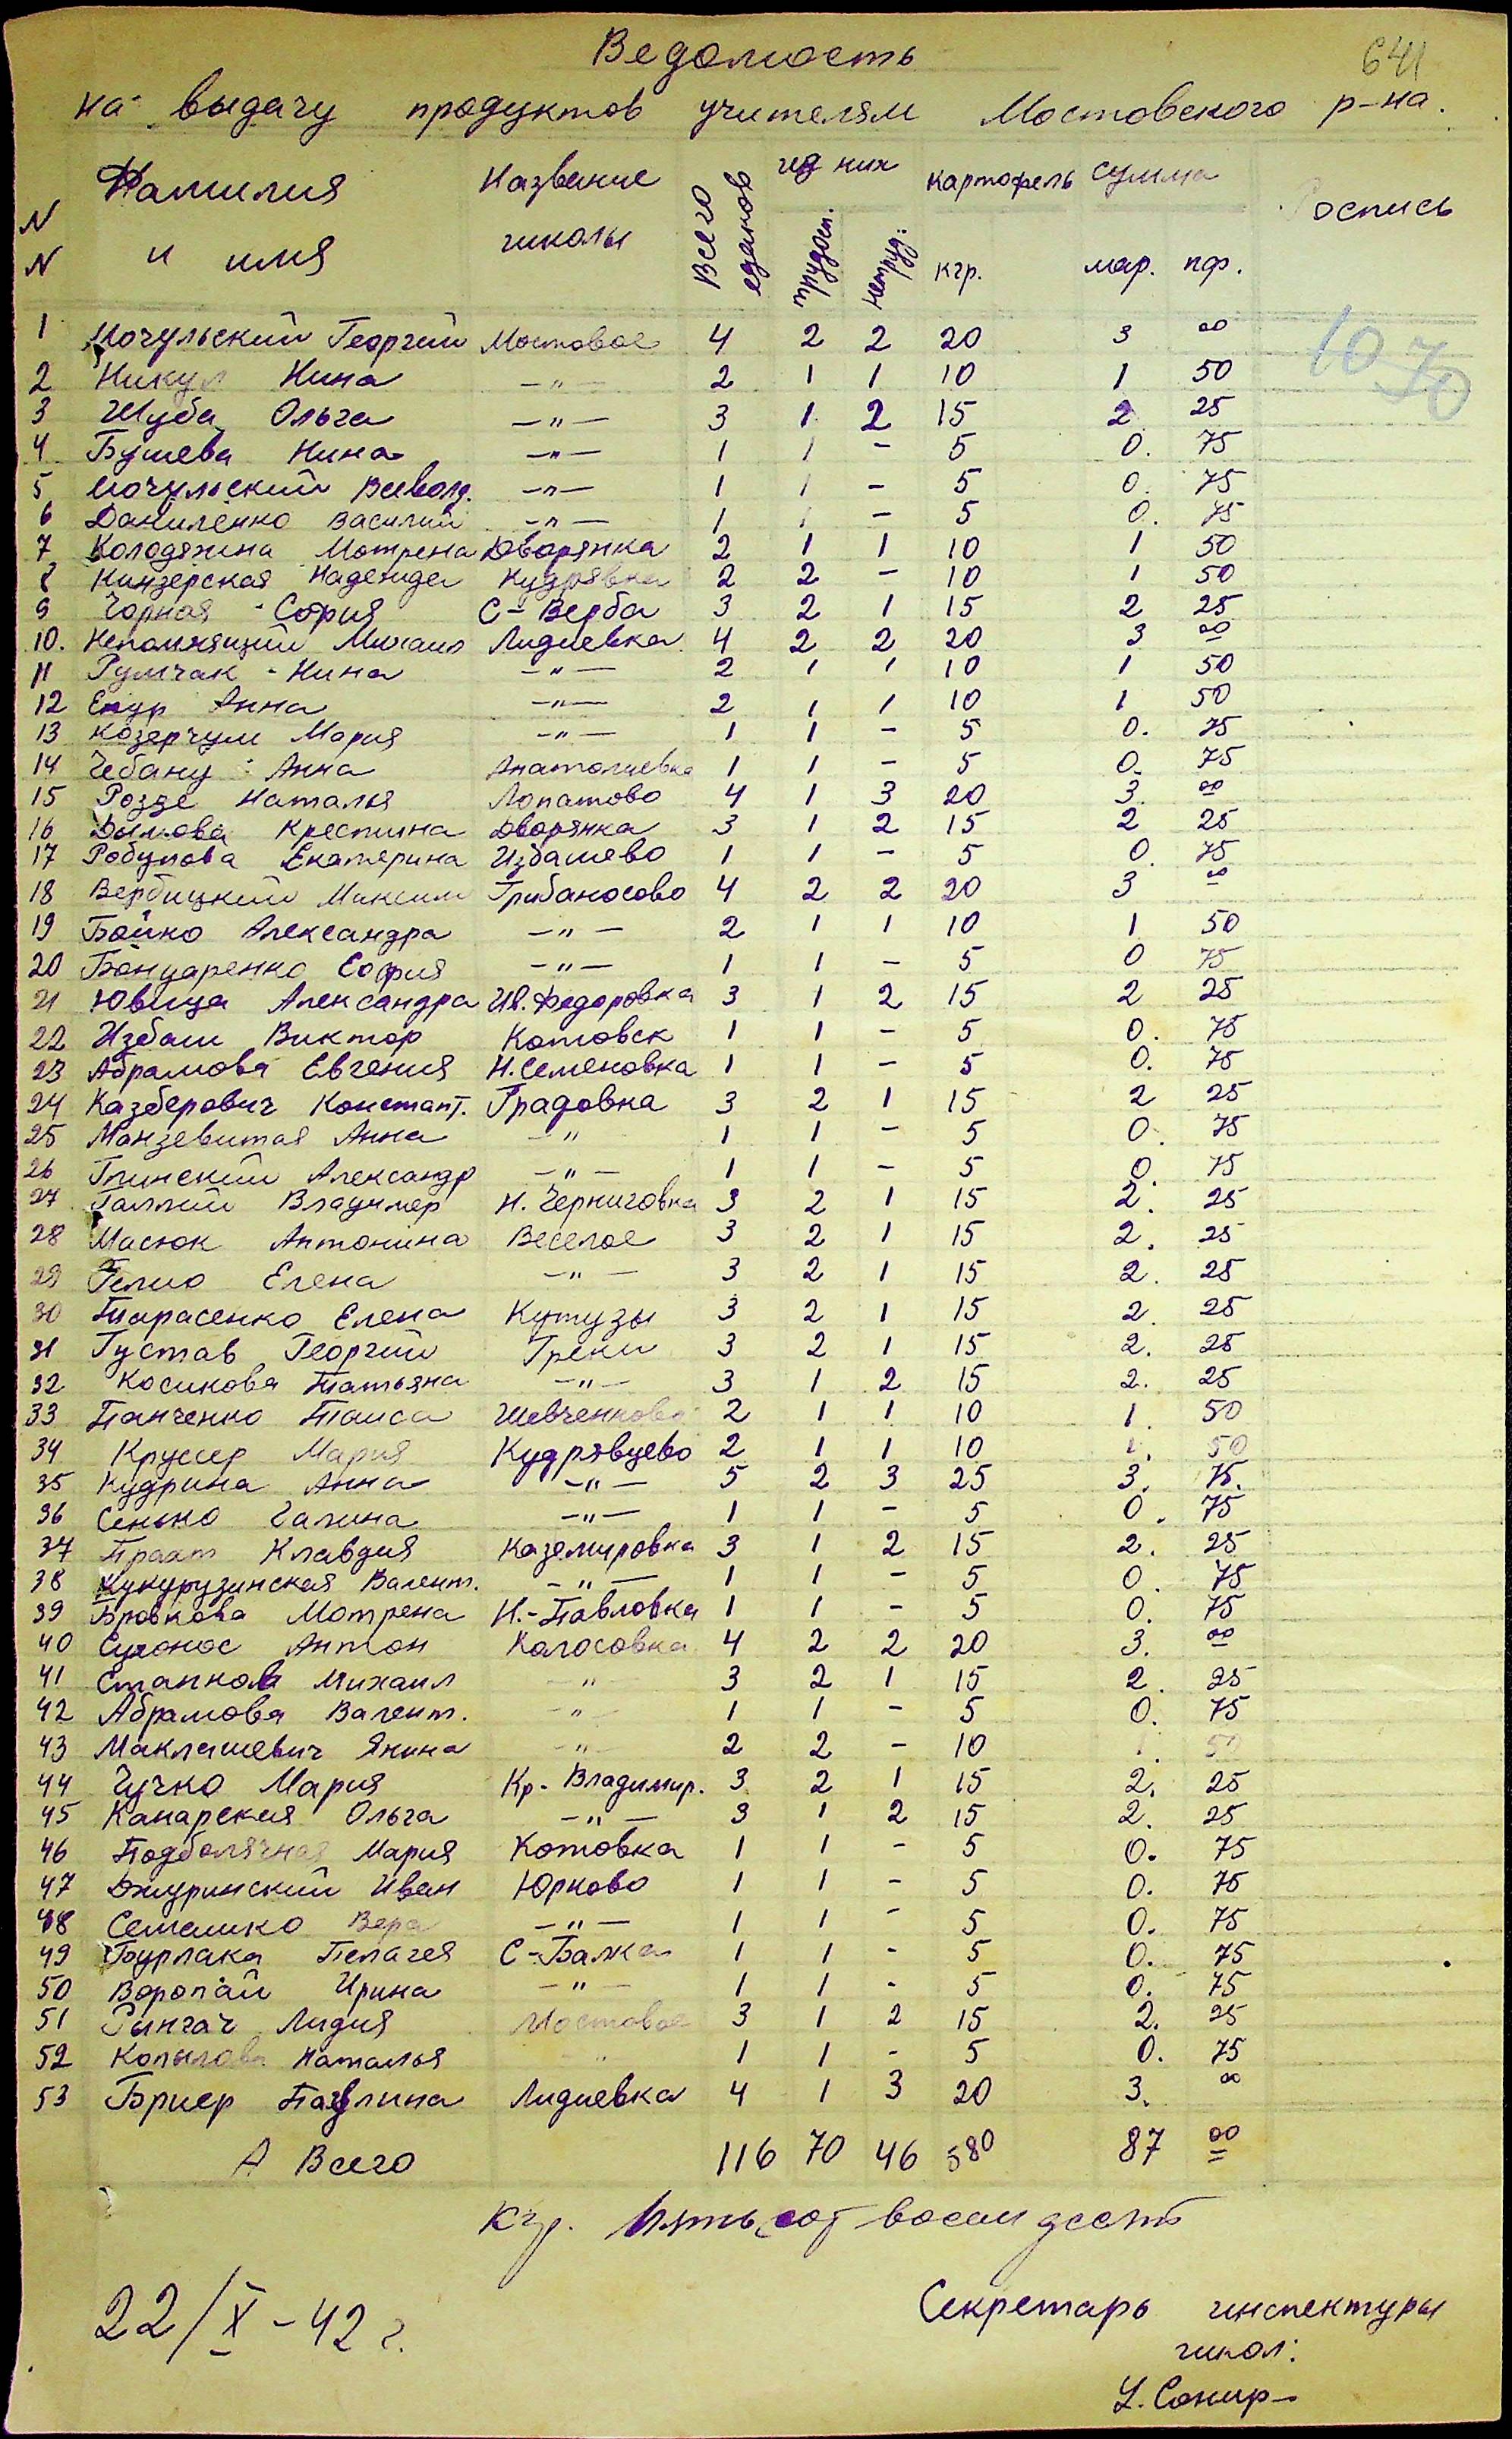 641
Ведомость
на выдачу продуктов учителям Мостовского р-на.
N N Фамилия и имя Название школы Всего едоков из них трудосп. нетруд. картофель кгр. сумма мар. пф. Роспись
1 Мочульский Георгий Мостовое 4 2 2 20 3 00
1070
2 Никул Нина —"— 2 1 1 10 1 50
3 Шуба Ольга —"— 3 1 2 15 2 25
4 Бушева Нина —"— 1 1 – 5 0. 75
5 Мочульский Всеволд. —"— 1 1 – 5 0. 75
6 Даниленко Василий —"— 1 1 – 5 0. 75
7 Колодяжина Мотрена Дворянка 2 1 1 10 1 50
8 Кинзерская Надежда Кудрявка 2 2 – 10 1 50
9 Чорная София С-Верба 3 2 1 15 2 25
10. Непомнящий Михаил Лидиевка 4 2 2 20 3 00
11 Румчак - Нина —"— 2 1 1 10 1 50
12 Екур Анна —"— 2 1 1 10 1 50
13 Козерчум Мария —"— 1 1 – 5 0. 75
14 Чебану Анна Анатолиевка 1 1 – 5 0. 75
15 Розде Наталья Лопатово 4 1 3 20 3. 00
16 Дымова Крестина Дворянка 3 1 2 15 2 25
17 Робулова Екатерина Избашево 1 1 – 5 0. 75
18 Вербицкий Максим Грибаносово 4 2 2 20 3 00
19 Бойко Александра —"— 2 1 1 10 1 50
20 Бондаренко София —"— 1 1 – 5 0 75
21 Ювица Александра Ив. Федоровка 3 1 2 15 2 25
22 Избаш Виктор Котовск 1 1 – 5 0. 75
23 Абрамова Евгения Н. Семеновка 1 1 – 5 0. 75
24 Казберович Констант. Градовка 3 2 1 15 2 25
25 Манзевитая Анна —" 1 1 – 5 0. 75
26 Глинский Александр —"— 1 1 – 5 0. 75
27 Галлий Владимер Н. Черниговка 3 2 1 15 2. 25
28 Масюк Антонина Веселое 3 2 1 15 2. 25
29 Гелио Елена —"— 3 2 1 15 2. 25
30 Тарасенко Елена Кутузы 3 2 1 15 2. 25
31 Густав Георгий Греки 3 2 1 15 2. 25
32 Косикова Татьяна —"— 3 1 2 15 2. 25
33 Панченко Таиса Шевченково 2 1 1 10 1. 50
34 Крушер Мария Кудрявцево 2 1 1 10 1. 50
35 Кудрина Анна —"— 5 2 3 25 3. 75.
36 Сенько Галина —"— 1 1 – 5 0. 75
37 Праат Клавдия Каземировка 3 1 2 15 2. 25
38 Кукурузинская Валент. —"— 1 1 – 5 0. 75
39 Бровкова Мотрена Н.-Павловка 1 1 – 5 0. 75
40 Сухонос Антон Колосовка 4 2 2 20 3. 00
41 Станков Михаил " 3 2 1 15 2. 25
42 Абрамова Валент. " 1 1 – 5 0. 75
43 Маклашевич Янина —"— 2 2 – 10 1. 50
44 Чучко Мария Кр-Владимир. 3 2 1 15 2. 25
45 Канарская Ольга —"— 3 1 2 15 2. 25
46 Подболячная Мария Котовка 1 1 – 5 0. 75
47 Джуринский Иван Юрково 1 1 – 5 0. 75
48 Семашко Вера —"— 1 1 – 5 0. 75
49 Бурлака Пелагея С-Балка 1 1 – 5 0. 75
50 Воропай Ирина —"— 1 1 - 5 0. 75
51 Рынгач Лидия Мостовое 3 1 2 15 2. 25
52 Копылова Наталья " 1 1 - 5 0. 75
53 Бриер Павлина Лидиевка 4 1 3 20 3. 00
А Всего 116 70 46 580 87 00
кгр. Пятьсот восемдесят
22/X-42 г.
Секретарь инспектуры
школ: